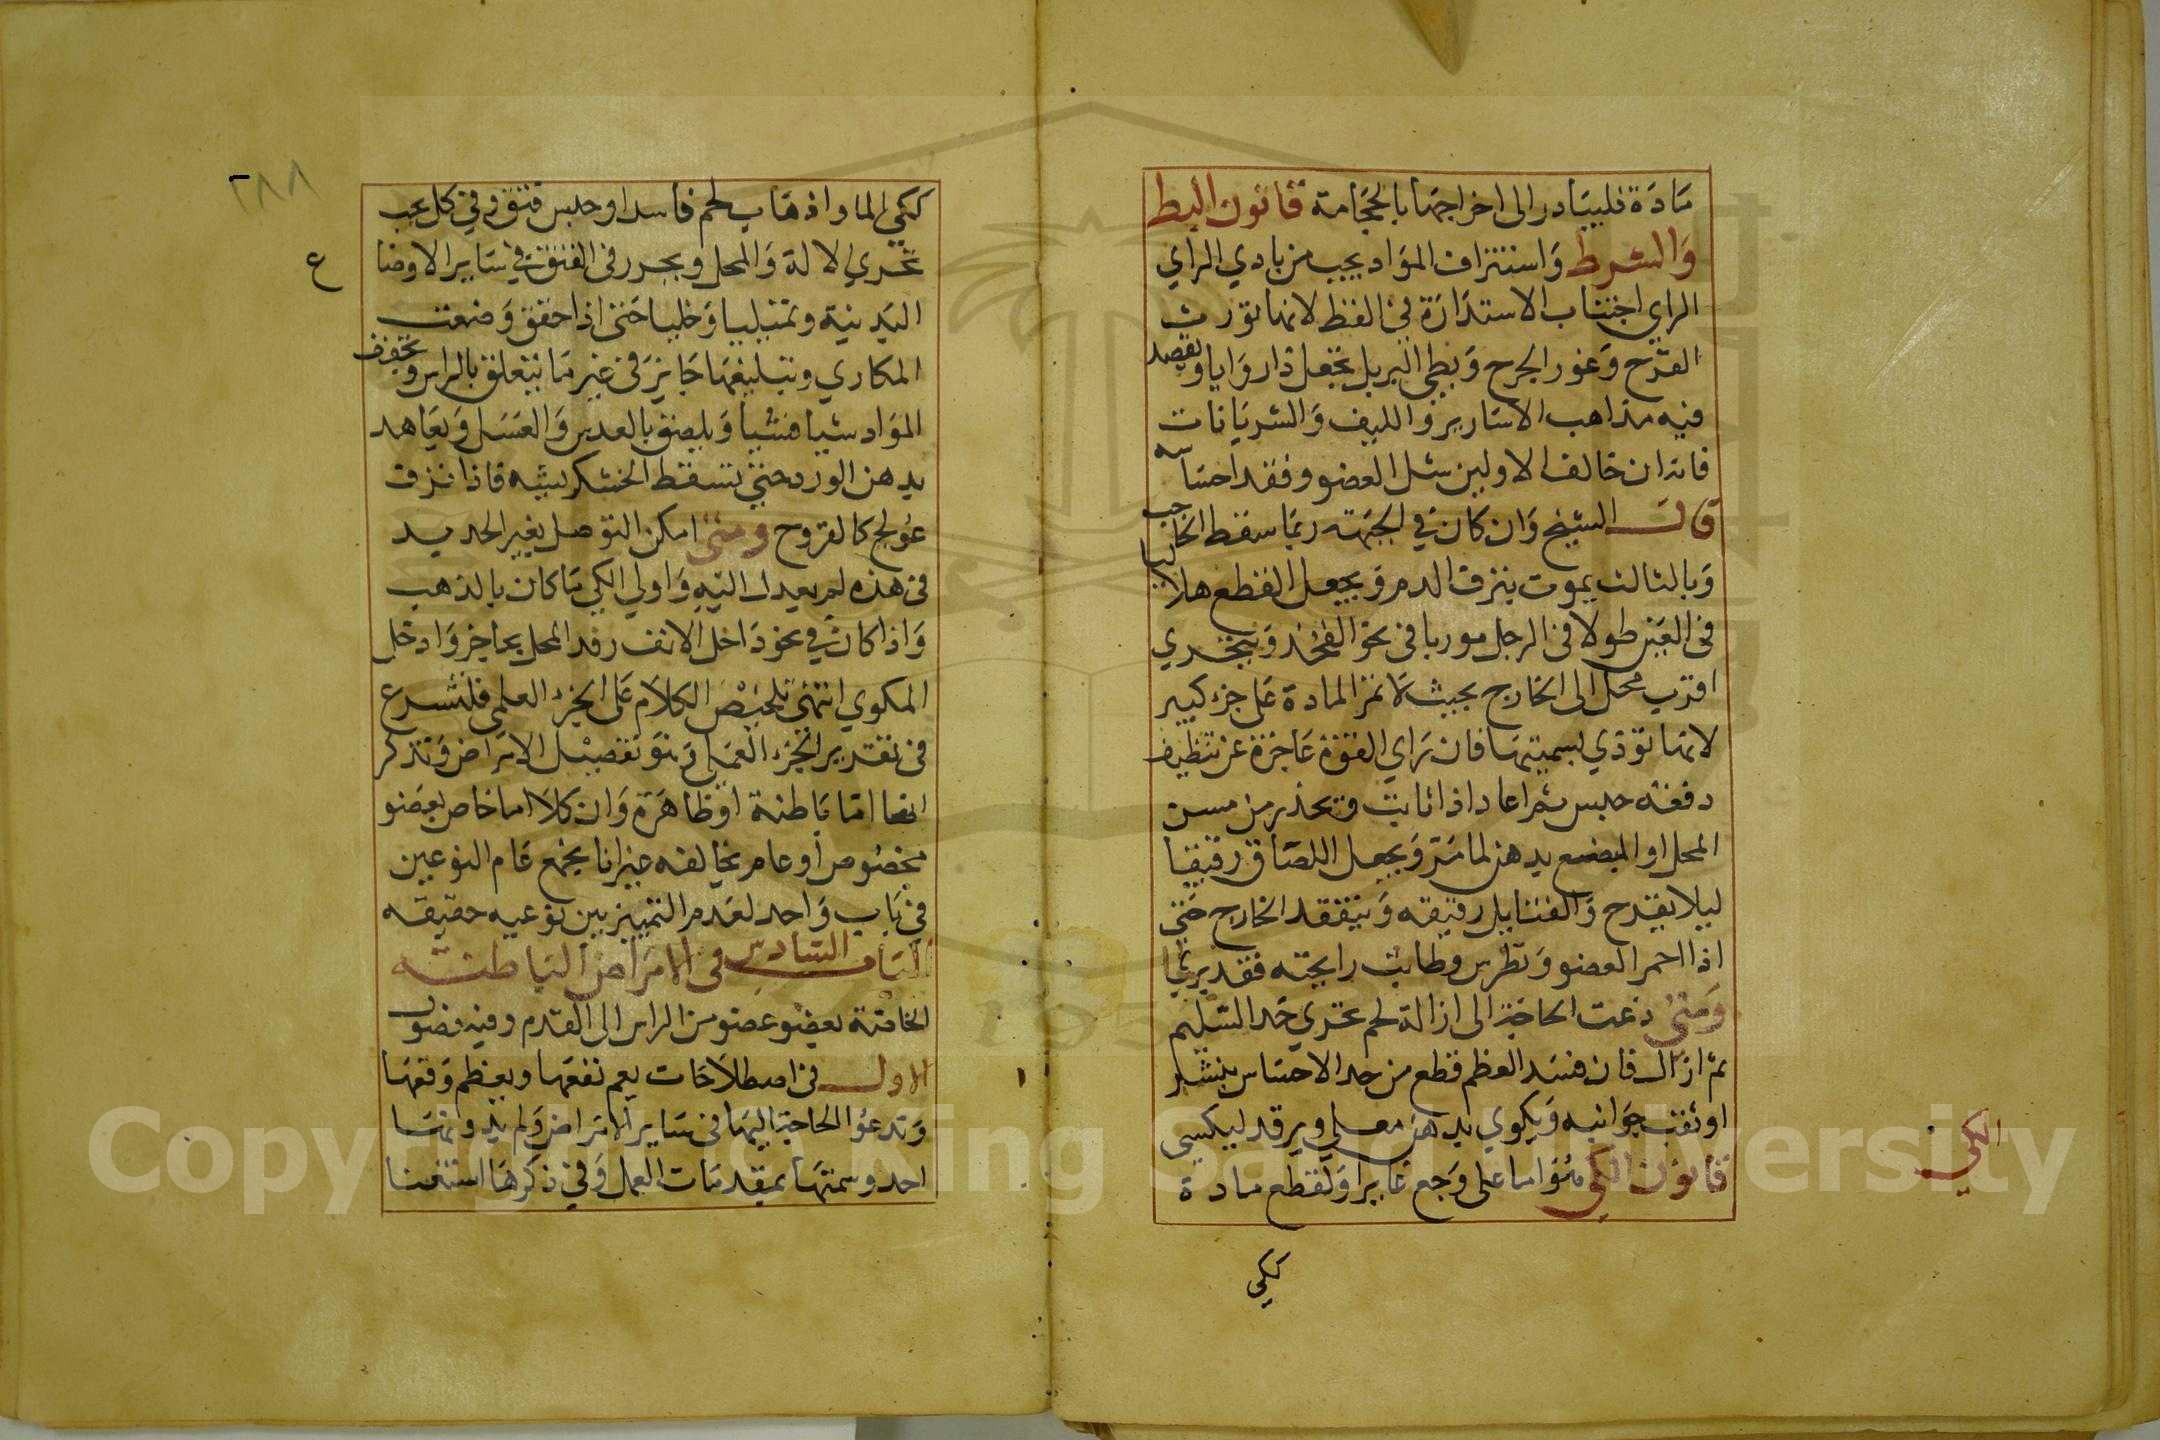 مادة فليبادر الى اخراجها بالحجامة قانون البط
والشرط واستنزاف المواد يجب من بادي الراي
الراي اجتناب الاستدارة في القطع لانها تورث
القرح وغور الجرح وبطي البر بل تجعل ذا زوايا ويقصد
فيه مذاهب الاسارير والليف والشريانات
فانه ان خالف الاولين شل العضو وفقد احساسه
قال الشيخ وان كان في الجبهة ربما سقط الحاجب
وبالثالث يموت بنزف الدم ويجعل القطع هلاليا
في العين طولا في الرجل موربا في نحو الفخذ ويتحري
اقرب محل الى الخارج بحيث لا تمر المادة على جزء كبير
لانها توذي بسميتها فان راي القوة عاجزة عن تنظيف
دفعة حبس ثم اعاد اذا ثابت ويحذر من مس
المحل او المبضع بدهن لما مر ويجعل اللصاق رقيقا
ليلا يقدح والفتايل رقيقه ويتفقد الخارج حتى
اذا احمر العضو وتطرس وطابت رايحته فقد بري
ومتى دعت الحاجة الى ازالة لحم تحري حد السليم
ثم ازال فان فسد العظم قطع من حد الاحساس بنشر
او ثقب جوانبه ويكوي بدهن مغلي ويرقد ليكسي
قانون الكي هو اما على وجع غاير او لقطع مادة
الكي
ككي
٢٨٨
ككي الما او اذهاب لحم فاسد او حبس فتق وفي كل يجب
تحري الالة والمحل ويحرر في الفتق في ساير الاوضا
ع
البدنية وتمتليا وخليا حتى اذا حقق وضعت
المكاوي وتبليغها جايز في غير ما يتعلق بالراس وتجفف
المواد شيا فشيا ويلصق بالعدس والعسل ويعاهد
بدهن الورد حتى تسقط الخشكريشه فاذا نزف
عولج كالقروح ومتى امكن التوصل بغير الحديد
في هذه لم يعدل اليه واولى الكي ما كان بالذهب
واذا كان في نحو داخل الانف رفد المحل بحاجز وادخل
المكوي انتهى تلخيص الكلام على الجزء العلمي فلنشرع
في تقدير الجزء العملي وهو تفصيل الامراض ونذكر
انها اما باطنة او ظاهرة وان كلا اما خاص بعضو
مخصوص او عام يخالفه غير انا نجمع عام النوعين
في باب واحد لعدم التمييز بين نوعيه حقيقه
الباب السادس في الامراض الباطنه
الخاصة بعضو عضو من الراس الى القدم وفيه فصول
الاول في اصطلاحات يعم نفعها ويعظم وقعها
وتدعو الحاجة اليها في ساير الامراض ولم يدونها
احد وسمتها بمقدمات العمل وفي ذكرها استغنا